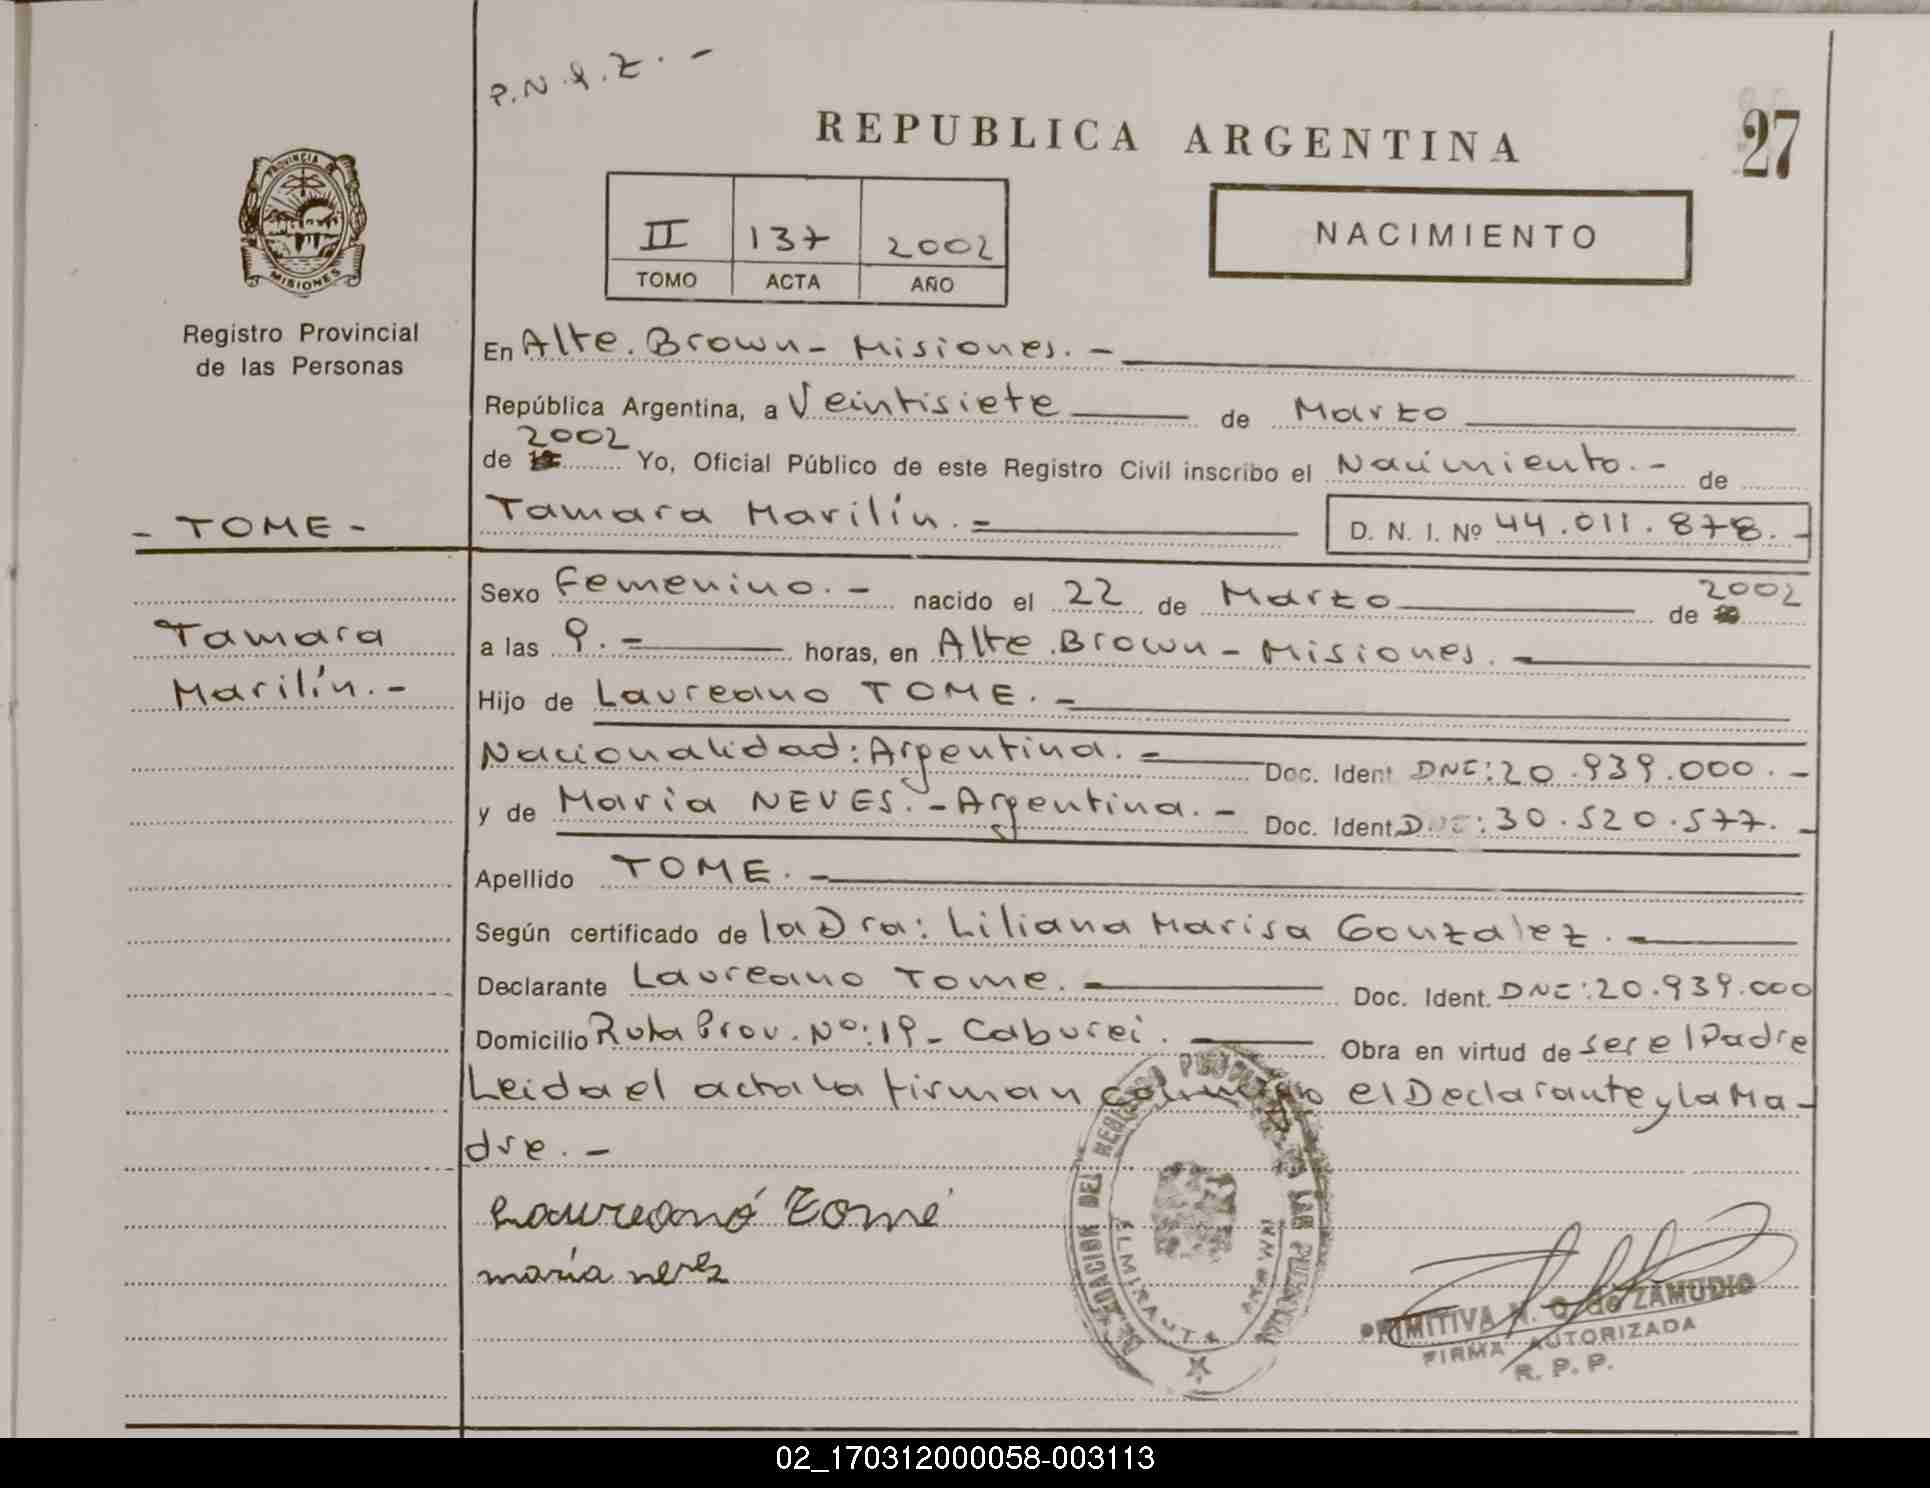 P.N.Q.Z. -
REPUBLICA ARGENTINA
27
II 137 2002
TOMO ACTA AÑO
NACIMIENTO
PROVINCIA
MISIONES
Registro Provincial
de las Personas
En Alte. Brown - Misiones. -
República Argentina, a Veintisiete de Marzo
de 2002 Yo, Oficial Público de este Registro Civil inscribo el Nacimiento. - de
- TOME -
Tamara Marilín. = D. N. I. Nº 44.011.878. -
Tamara
Marilín. -
Sexo Femenino. - nacido el 22 de Marzo de 2002
a las 9. = horas, en Alte. Brown - Misiones. -
Hijo de Laureano TOME. -
Nacionalidad: Argentina. - Doc. Ident DNI: 20.939.000. -
y de María NEVES. - Argentina. - Doc. Ident. DNI: 30.520.577. -
Apellido TOME. -
Según certificado de la Dra: Liliana Marisa Gonzalez. -
Declarante Laureano Tome. - Doc. Ident. DNI: 20.939.000
Domicilio Ruta Prov. Nº: 19 - Caburei. - Obra en virtud de ser el Padre
Leida el acta la firman conmigo el Declarante y la Ma-
dre. -
Laureanó Tomé
maría neves
DELEGACION DEL REGISTRO PROVINCIAL DE LAS PERSONAS
ALMIRANTE BROWN
PRIMITIVA N. G. de ZAMUDIO
FIRMA AUTORIZADA
R. P. P.
02_170312000058-003113